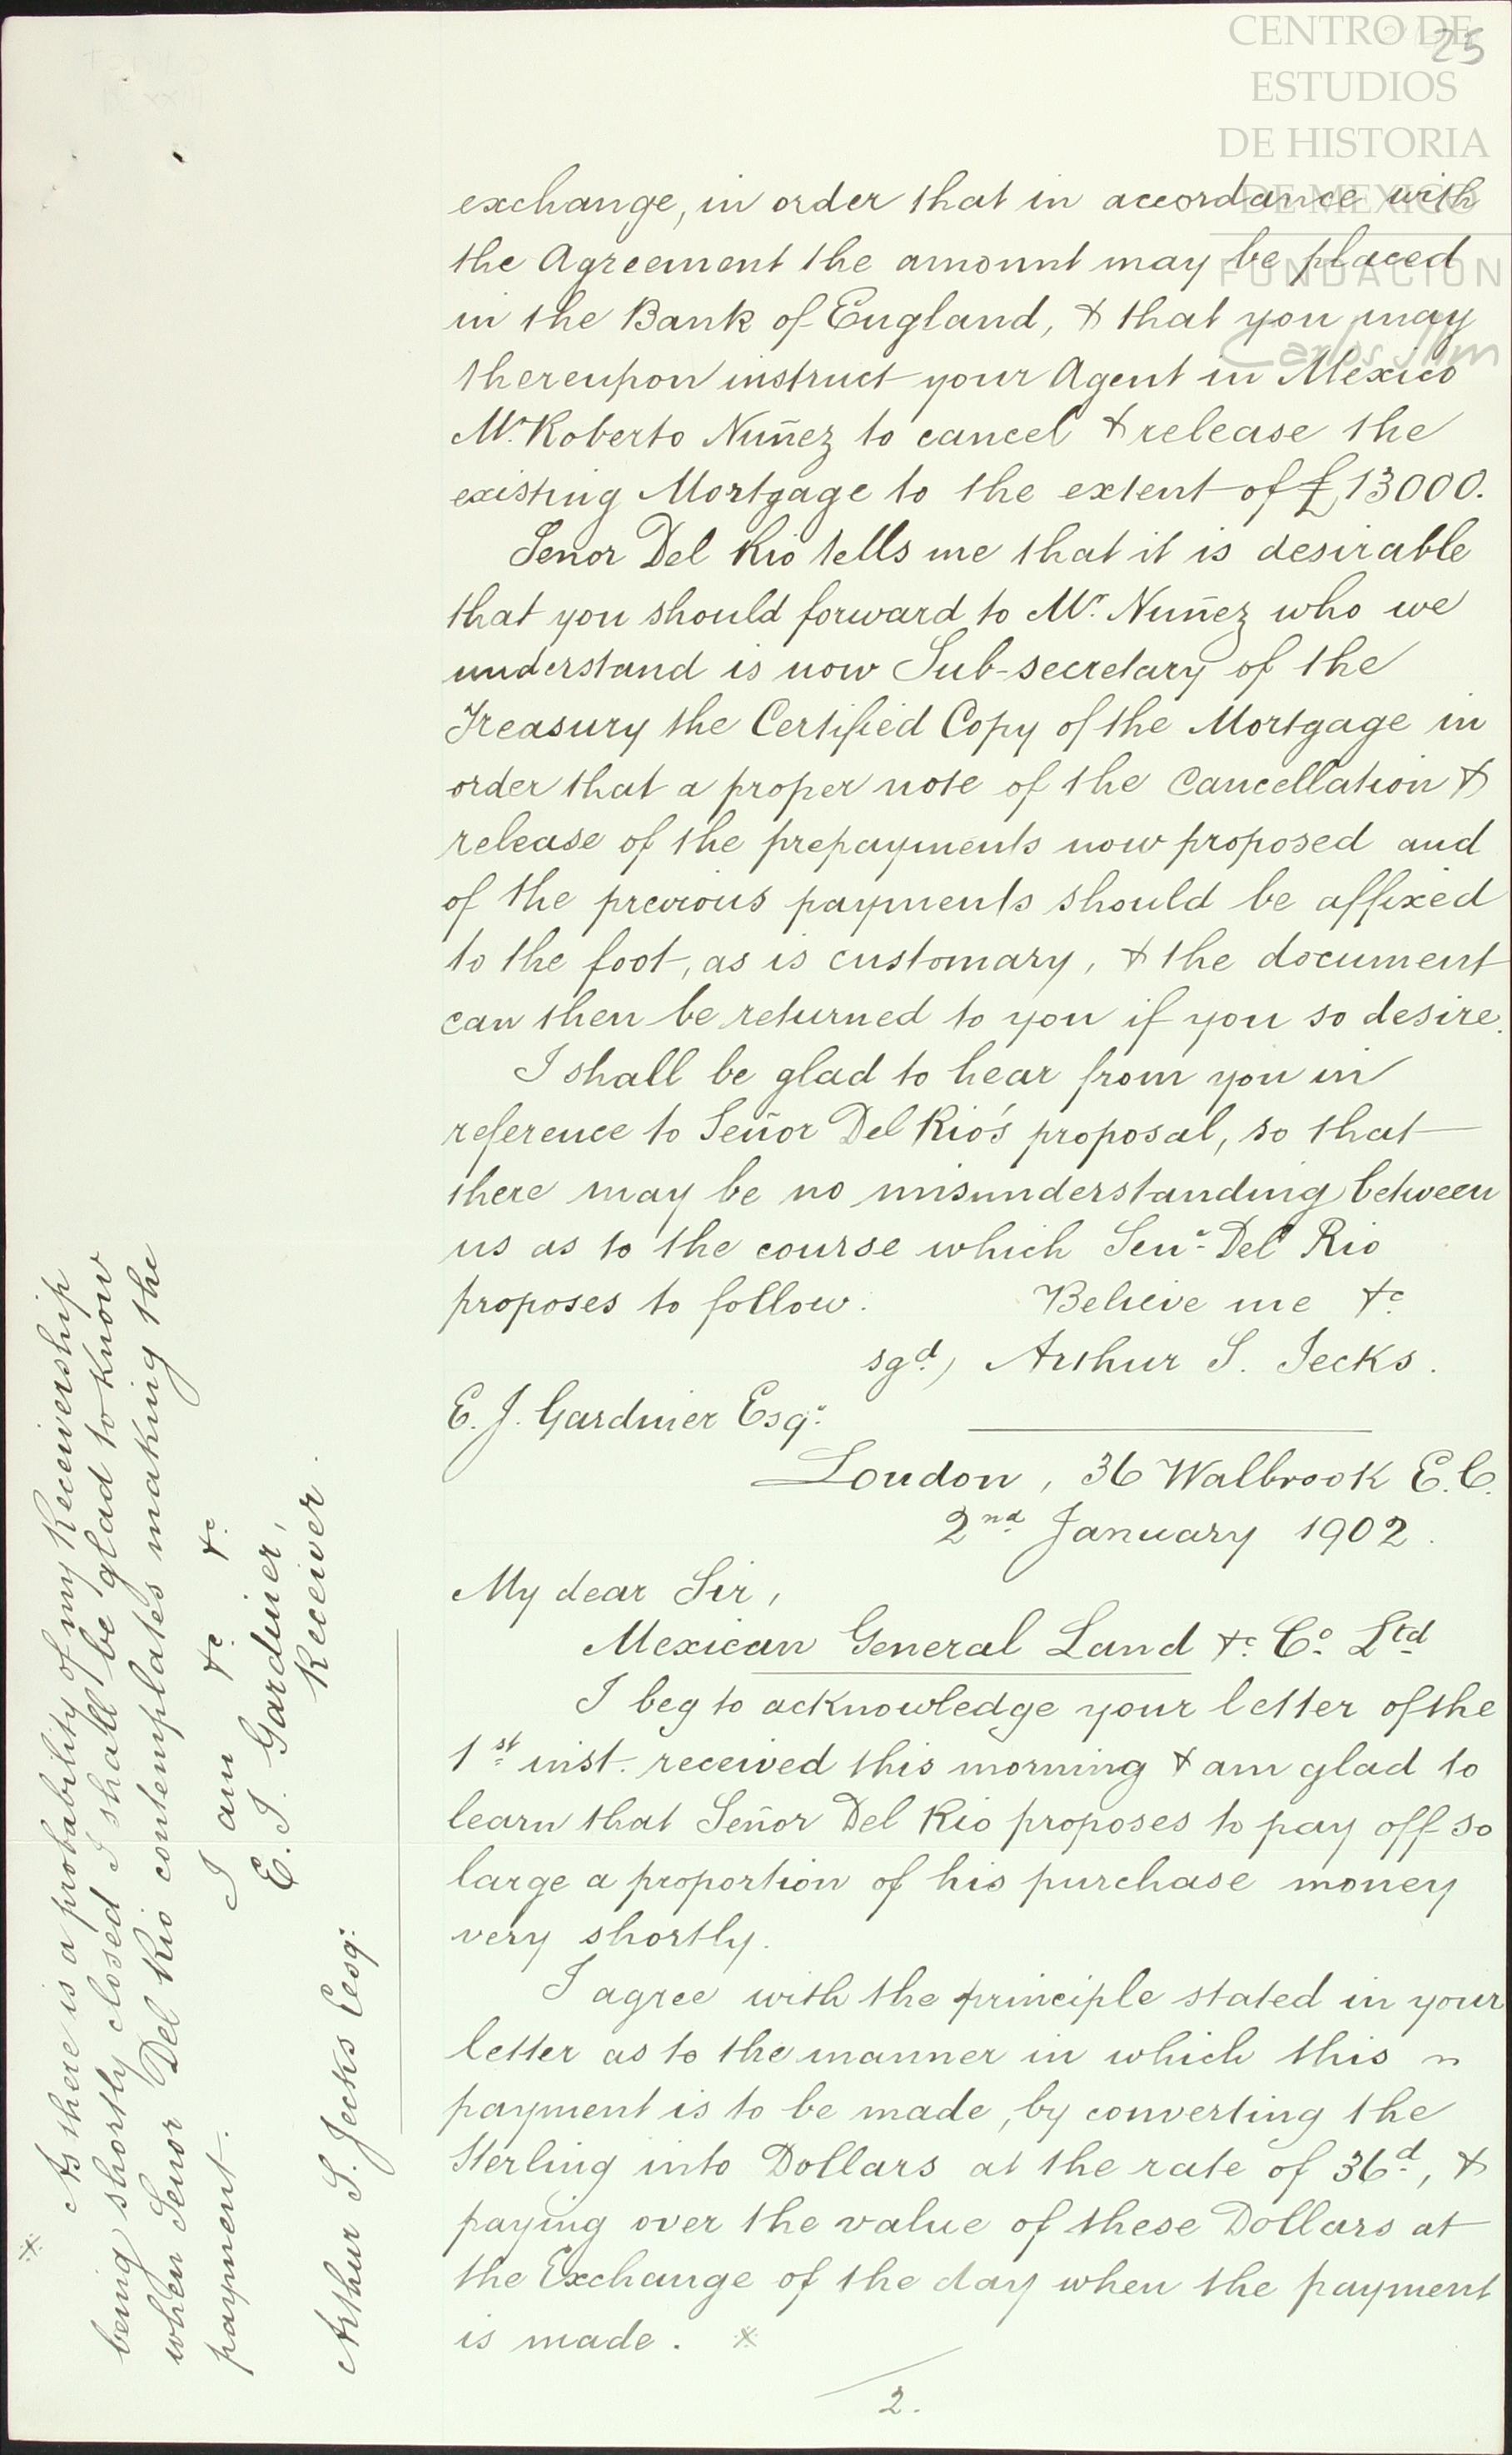 CENTRO DE
ESTUDIOS
DE HISTORIA
DE MEXICO
FUNDACION
Carlos Slim
25
exchange, in order that in accordance with
the Agreement the amount may be placed
in the Bank of England, & that you may
thereupon instruct your Agent in Mexico
Mr. Roberto Nuñez to cancel & release the
existing Mortgage to the extent of £13000.
Senor Del Rio tells me that it is desirable
that you should forward to Mr. Nuñez who we
understand is now Sub-secretary of the
Treasury the Certified Copy of the Mortgage in
order that a proper note of the Cancellation &
release of the prepayments now proposed and
of the previous payments should be affixed
to the foot, as is customary, & the document
can then be returned to you if you so desire.
I shall be glad to hear from you in
reference to Señor Del Rio's proposal, so that
there may be no misunderstanding between
us as to the course which Senr. Del Rio
proposes to follow. Believe me &c.
sgd.) Arthur S. Jecks.
E. J. Gardiner Esqr.
London, 36 Walbrook E.C.
2nd January 1902.
My dear Sir,
Mexican General Land &c. Co. Ltd
I beg to acknowledge your letter of the
1st. inst. received this morning & am glad to
learn that Señor Del Rio proposes to pay off so
large a proportion of his purchase money
very shortly.
I agree with the principle stated in your
letter as to the manner in which this
payment is to be made, by converting the
Sterling into Dollars at the rate of 36d., &
paying over the value of these Dollars at
the Exchange of the day when the payment
is made. ※
2.
※ As there is a probability of my Receivership
being shortly closed I shall be glad to know
when Senor Del Rio contemplates making the
payment.
I am &c. &c.
E. J. Gardiner,
Receiver.
Arthur S. Jecks Eesqr.